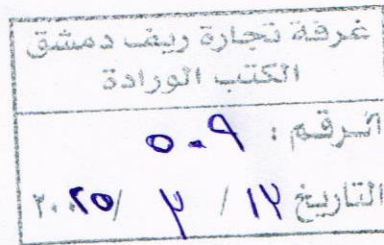 غرفة تجارة ريف دمشق
الكتب الورادة
الرقم : ٥٠٩
التاريخ ١٢ / ٣ / ٢٠٢٥